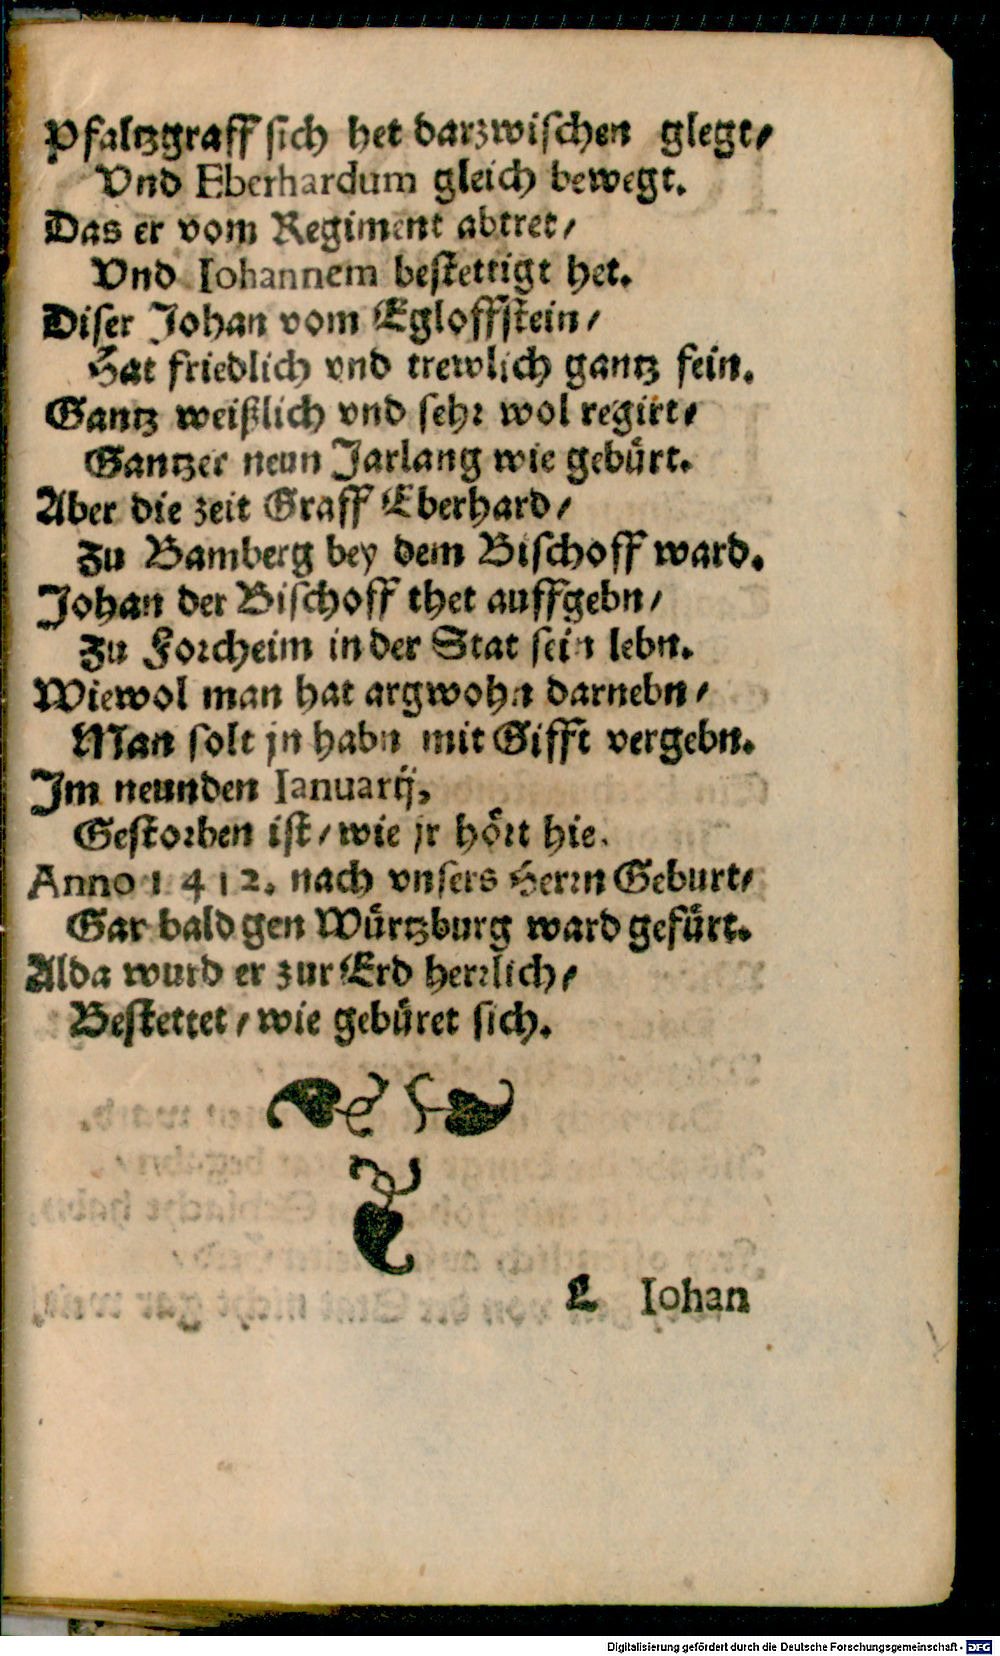 Pfaltzgraff sich het darzwischen glegt/
Vnd Eberhardum gleich bewegt.
Das er vom Regiment abtret/
Vnd Iohannem bestettigt het.
Diser Johan vom Egloffstein/
Hat friedlich vnd trewlich gantz fein.
Gantz weißlich vnd sehr wol regirt/
Gantzer neun Jarlang wie gebürt.
Aber die zeit Graff Eberhard/
Zu Bamberg bey dem Bischoff ward.
Johan der Bischoff thet auffgebn/
Zu Forcheim in der Stat sein lebn.
Wiewol man hat argwohn darnebn/
Man solt jn habn mit Gifft vergebn.
Im neunden Ianuarij,
Gestorben ist/ wie jr hört hie.
Anno 1412. nach vnsers Herrn Geburt/
Gar bald gen Würtzburg ward gefürt.
Alda wurd er zur Erd herrlich/
Bestettet/ wie gebüret sich.
L Iohan
Digitalisierung gefördert durch die Deutsche Forschungsgemeinschaft - DFG